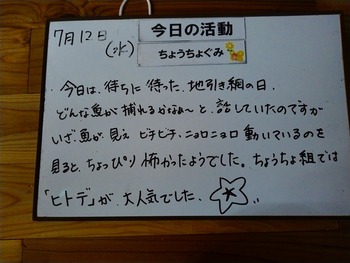 7月12日
(水)
今日の活動
ちょうちょぐみ
今日は、待ちに待った、地引き網の日。
どんな魚が捕れるかなぁ〜と、話していたのですが
いざ、魚が見え ピチピチ、ニョロニョロ動いているのを
見ると、ちょっぴり怖かったようでした。ちょうちょ組では
「ヒトデ」が、大人気でした。